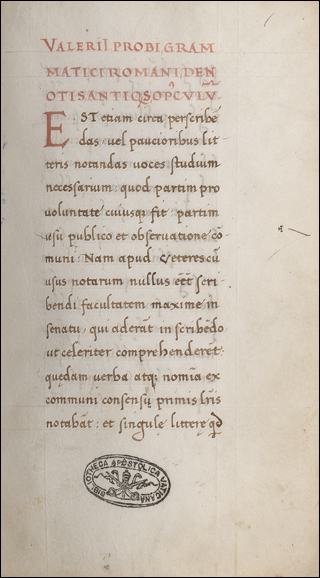 VALERII PROBI GRAM
MATICI ROMANI DE N
OTIS ANTIQS OPCVLV̅
EST etiam circa perscribē
das uel paucioribus lit
teris notandas uoces studium
necessarium: quod partim pro
voluntate cuiusq; fit: partim
usu publico et observatione cō
muni: Nam apud veteres cū
usus notarum nullus eēt scri
bendi facultatem maxime in
senatu, qui aderāt in scribēdo
ut celeriter comprehenderēt
quedam uerba atq; nomīa ex
communi consensu primis lr̄is
notabāt: et singule littere qd
BIBLIOTHECA APOSTOLICA VATICANA